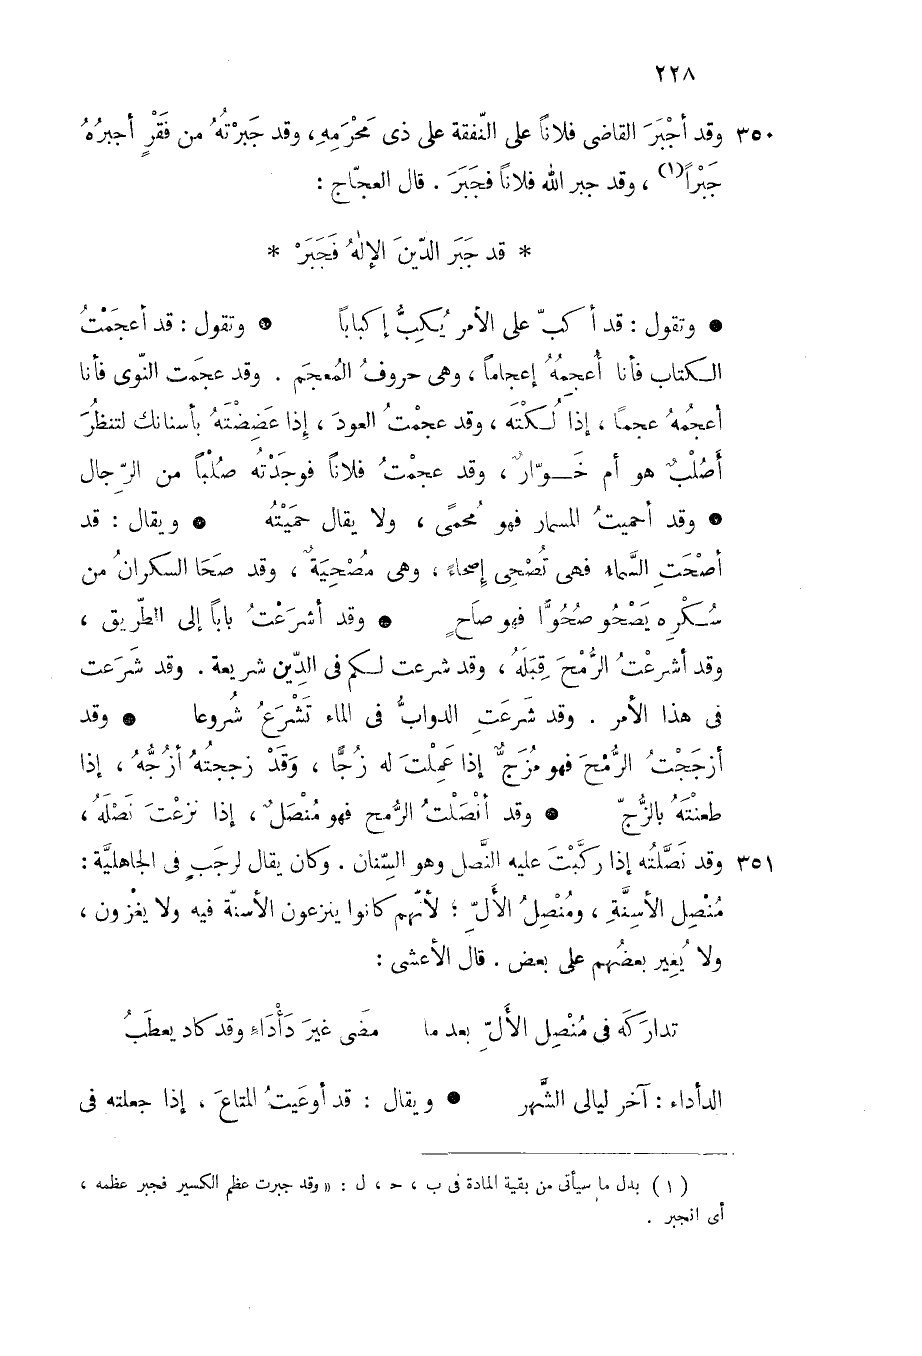 ٢٢٨
٣٥٠ وقد أَجْبَرَ القاضى فلاناً على النّفقة على ذى مَحْرَمِهِ، وقد جَبَرْتهُ من فَقْرٍ أجبرُهُ
جَبْراً(١)، وقد جبر الله فلاناً فجَبَرَ . قال العجّاج :
* قد جَبَر الدّينَ الإلٰهُ فَجَبَرْ *
● وتقول : قد أكبّ على الأمر يُكِبُّ إكباباً ● وتقول : قد أعجَمْتُ
الكتاب فأنا أُعجِمُهُ إعجاماً ، وهى حروفُ المُعجَم . وقد عجمَت النّوى فأنا
أعجُمهُ عجماً ، إذا لُكْتَه ، وقد عجمْتُ العودَ ، إذا عَضِضْتَهُ بأسنانك لتنظُرَ
أَصُلْبٌ هو أم خَوّارٌ ، وقد عجمْتُ فلاناً فوجَدْتهُ صُلْباً من الرّجال
● وقد أحميتُ المسمار فهو مُحمًى ، ولا يقال حَمَيْتهُ ● ويقال : قد
أصْحَتِ السَّماء فهى تُصْحِى إصحاءً ، وهى مُصْحِيَةٌ ، وقد صَحَا السكرانُ من
سُكْرِه يَصْحُو صُحُوًّا فهو صاحٍ ● وقد أشرَعْتُ باباً إلى الطّريق ،
وقد أشرعْتُ الرُّمْحَ قِبَلَهُ ، وقد شرعت لكم فى الدِّين شريعة . وقد شَرَعت
فى هذا الأمر . وقد شَرعَتِ الدوابُّ فى الماء تَشْرَعُ شُروعا ● وقد
أزجَجْتُ الرُّمْحَ فهو مُزَجٌّ إذا عَمِلْتَ له زُجًّا ، وَقَدْ زججتهُ أزُجُّهُ ، إذا
طعنْتَهُ بالزُّجّ ● وقد أنْصَلْتُ الرُّمح فهو مُنْصَلٌ ، إذا نزعْتَ نَصْلَهُ ،
٣٥١ وقد نَصَّلْتُه إذا ركَّبْتَ عليه النَّصل وهو السِّنان . وكان يقال لرجَبٍ فى الجاهليَّة :
مُنْصِل الأسِنَّةِ ، ومُنْصِلُ الأَلِّ ؛ لأنّهم كانوا ينزعون الأسنّة فيه ولا يغْزون ،
ولا يُغِير بعضُهم على بعض . قال الأعشى :
تدارَكَه فى مُنْصِل الأَلِّ بعد ما مضَى غيرَ دَأْدَاءٍ وقد كاد يعطَبُ
الدأداء : آخر ليالى الشَّهر ● ويقال : قد أوعَيتُ المتاعَ ، إذا جعلته فى
(١) بدل ما سيأتى من بقية المادة فى ب ، ح ، ل : « وقد جبرت عظم الكسير فجبر عظمه ،
أى انجبر .